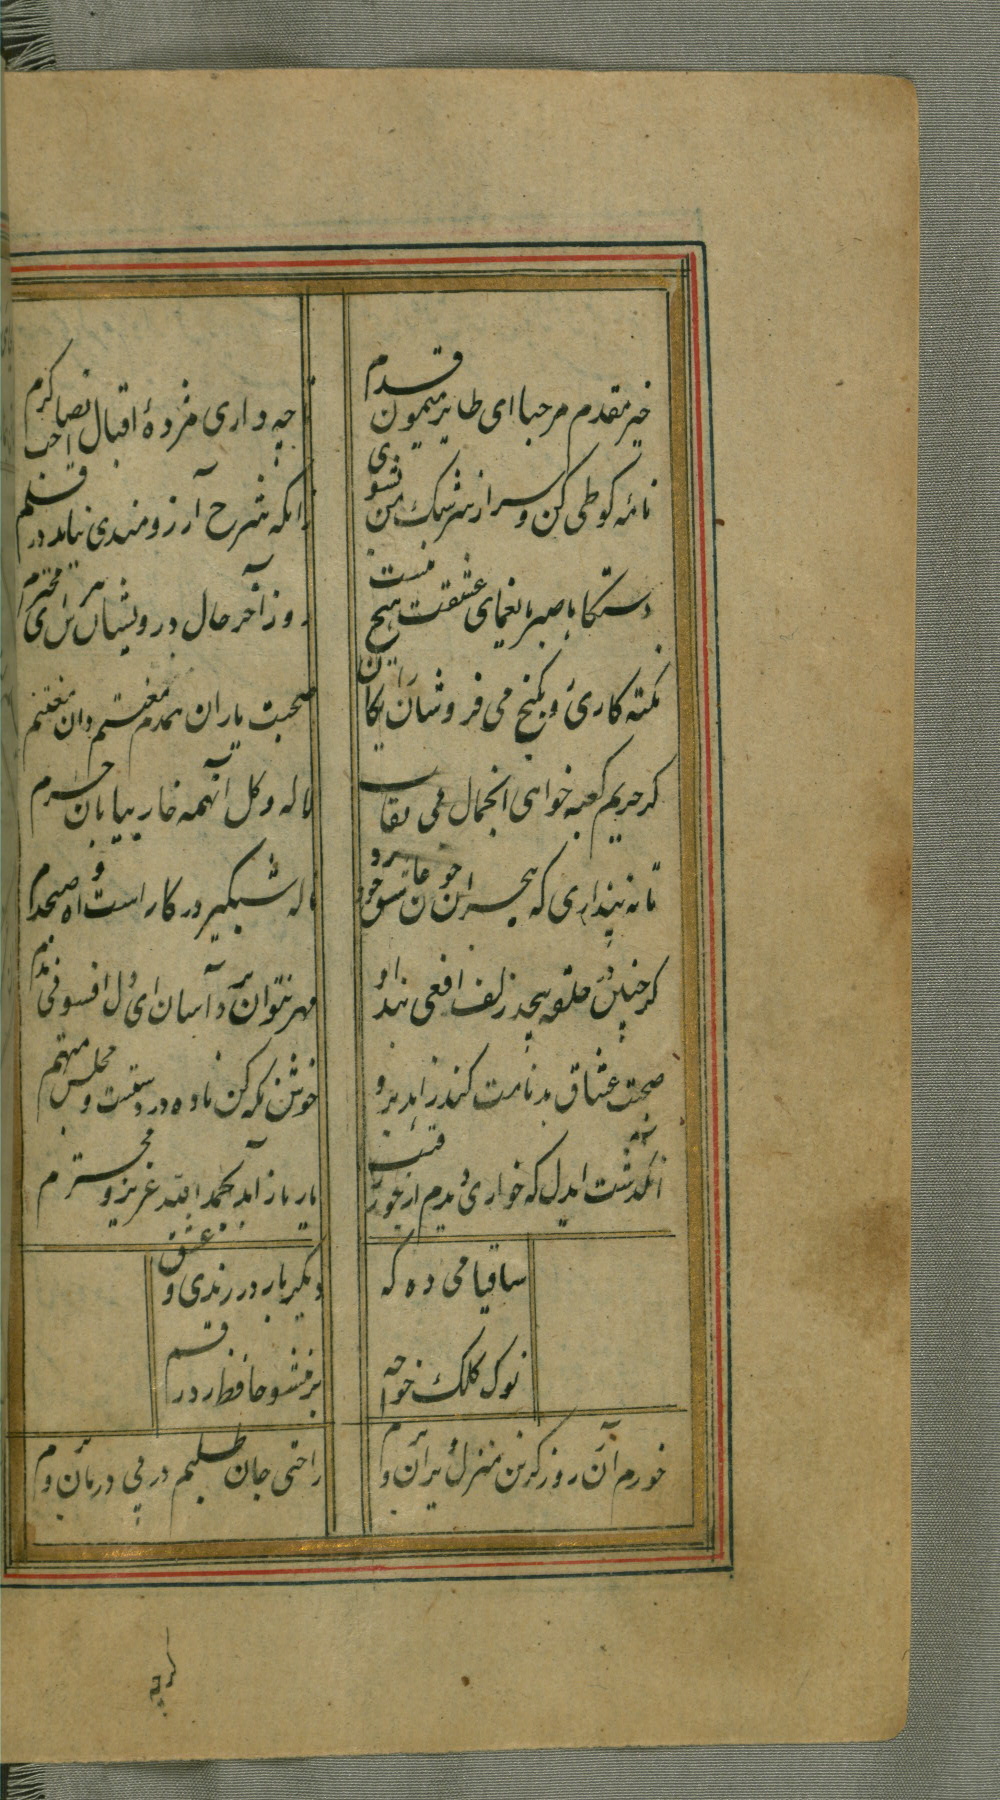 خیر مقدم مرحبا ای طایر میمون قدم
چه داری مژدهٔ اقبال اصحاب کرم
نامه کوطی کن و سر از سرشک من بشوی
زانکه شرح آرزومندی نیاید در قلم
دستکاه صبر با یغمای عشقت هیچ نیست
روز آخر حال درویشان بپرس ای محترم
نکته کاری و بکنج می فروشان
صحبت یاران همدم مغتنم دان مغتنم
کر حریم کعبه خواهی انجمال بی نقاب
لاله و کل آنهمه خار بیابان حرم
تا نه پنداری که هجران عاشق
ناله شبکیر در کار است و آه صبحدم
کر چنین در حلقه پیچد زلف افعی بند او
مهر نتوان برد آسان ای دل افسونی بدم
صحبت عشاق بدنامت کند زاهد برو
خوش نکه کن باده در دستست و مجلس متهم
آنکذشت ایدل که خواری دیدم از جور رقیب
یار باز آمد بحمد الله عزیز و محترم
ساقیا می ده که
دیکر بار در رندی و عشق
نوک کلک خواجه
بر منشور حافظ زد رقم
خورم آن روز کزین منزل ویران بروم
راحتی جان طلبم در پی درمان بروم